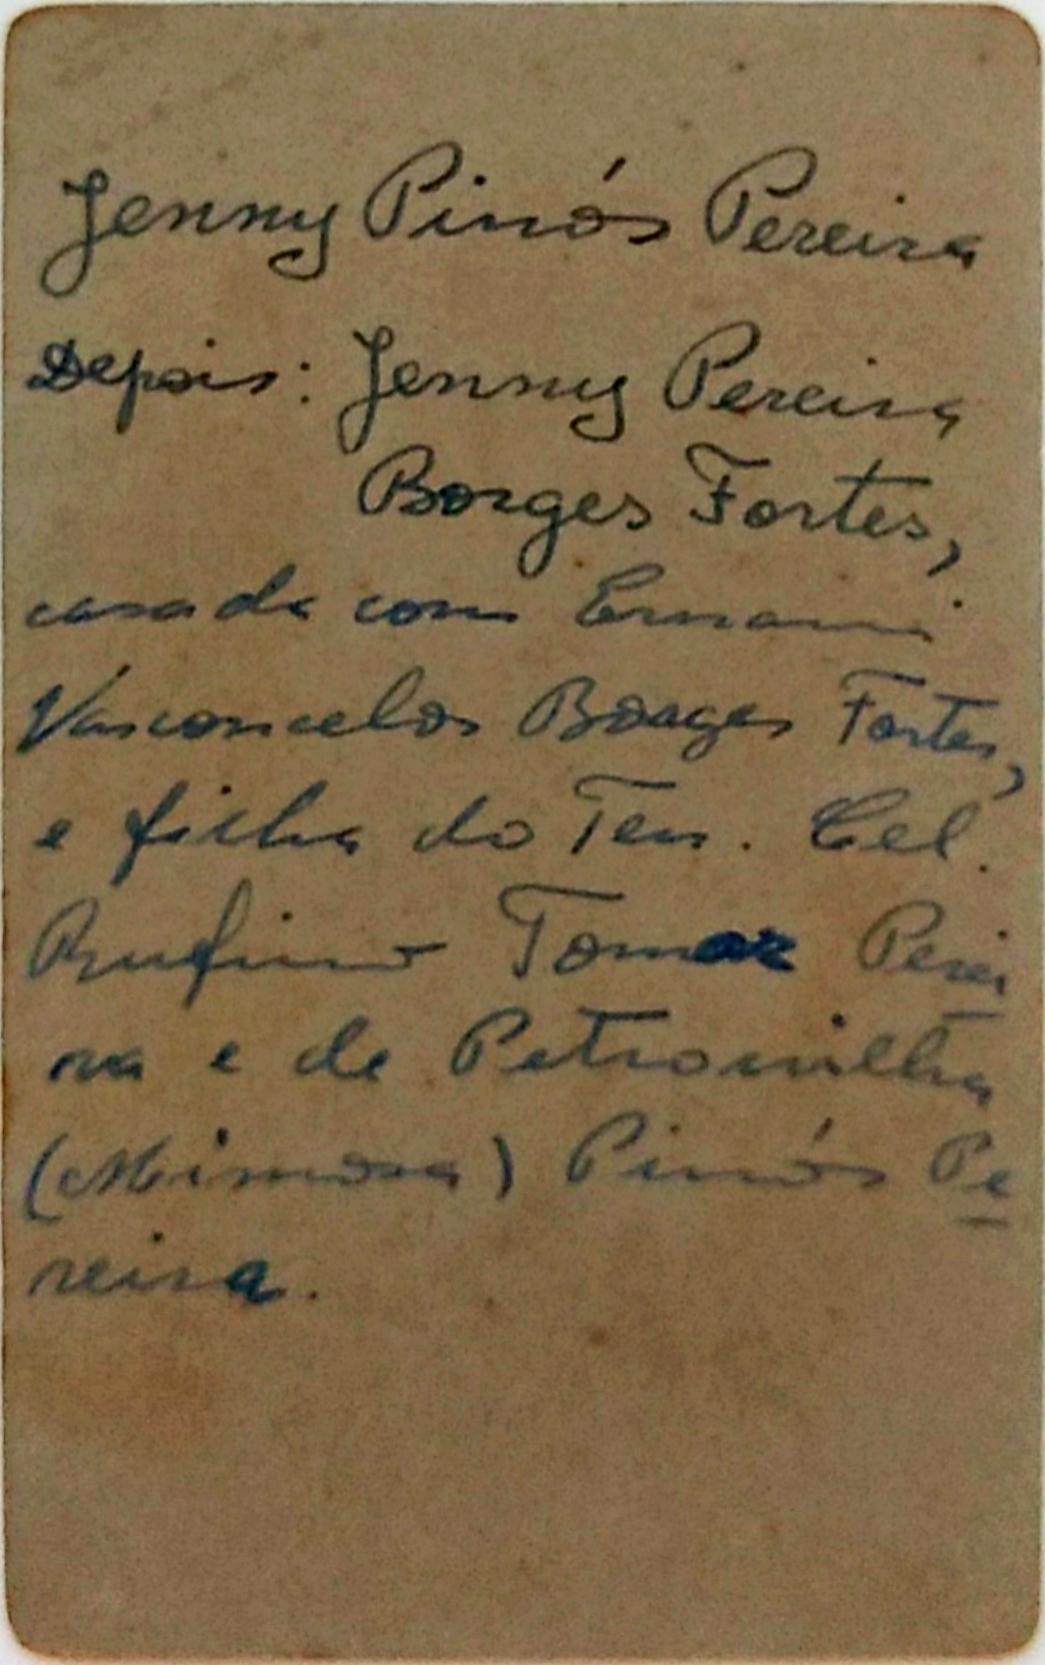 Jenny Pinós Pereira
Depois: Jenny Pereira
Borges Fortes,
casada com Ernani
Vasconcelos Borges Fortes,
e filha do Ten. Cel.
Rufino Tomaz Perei
ra e de Petronilha
(Mimosa) Pinós Pe
reira.